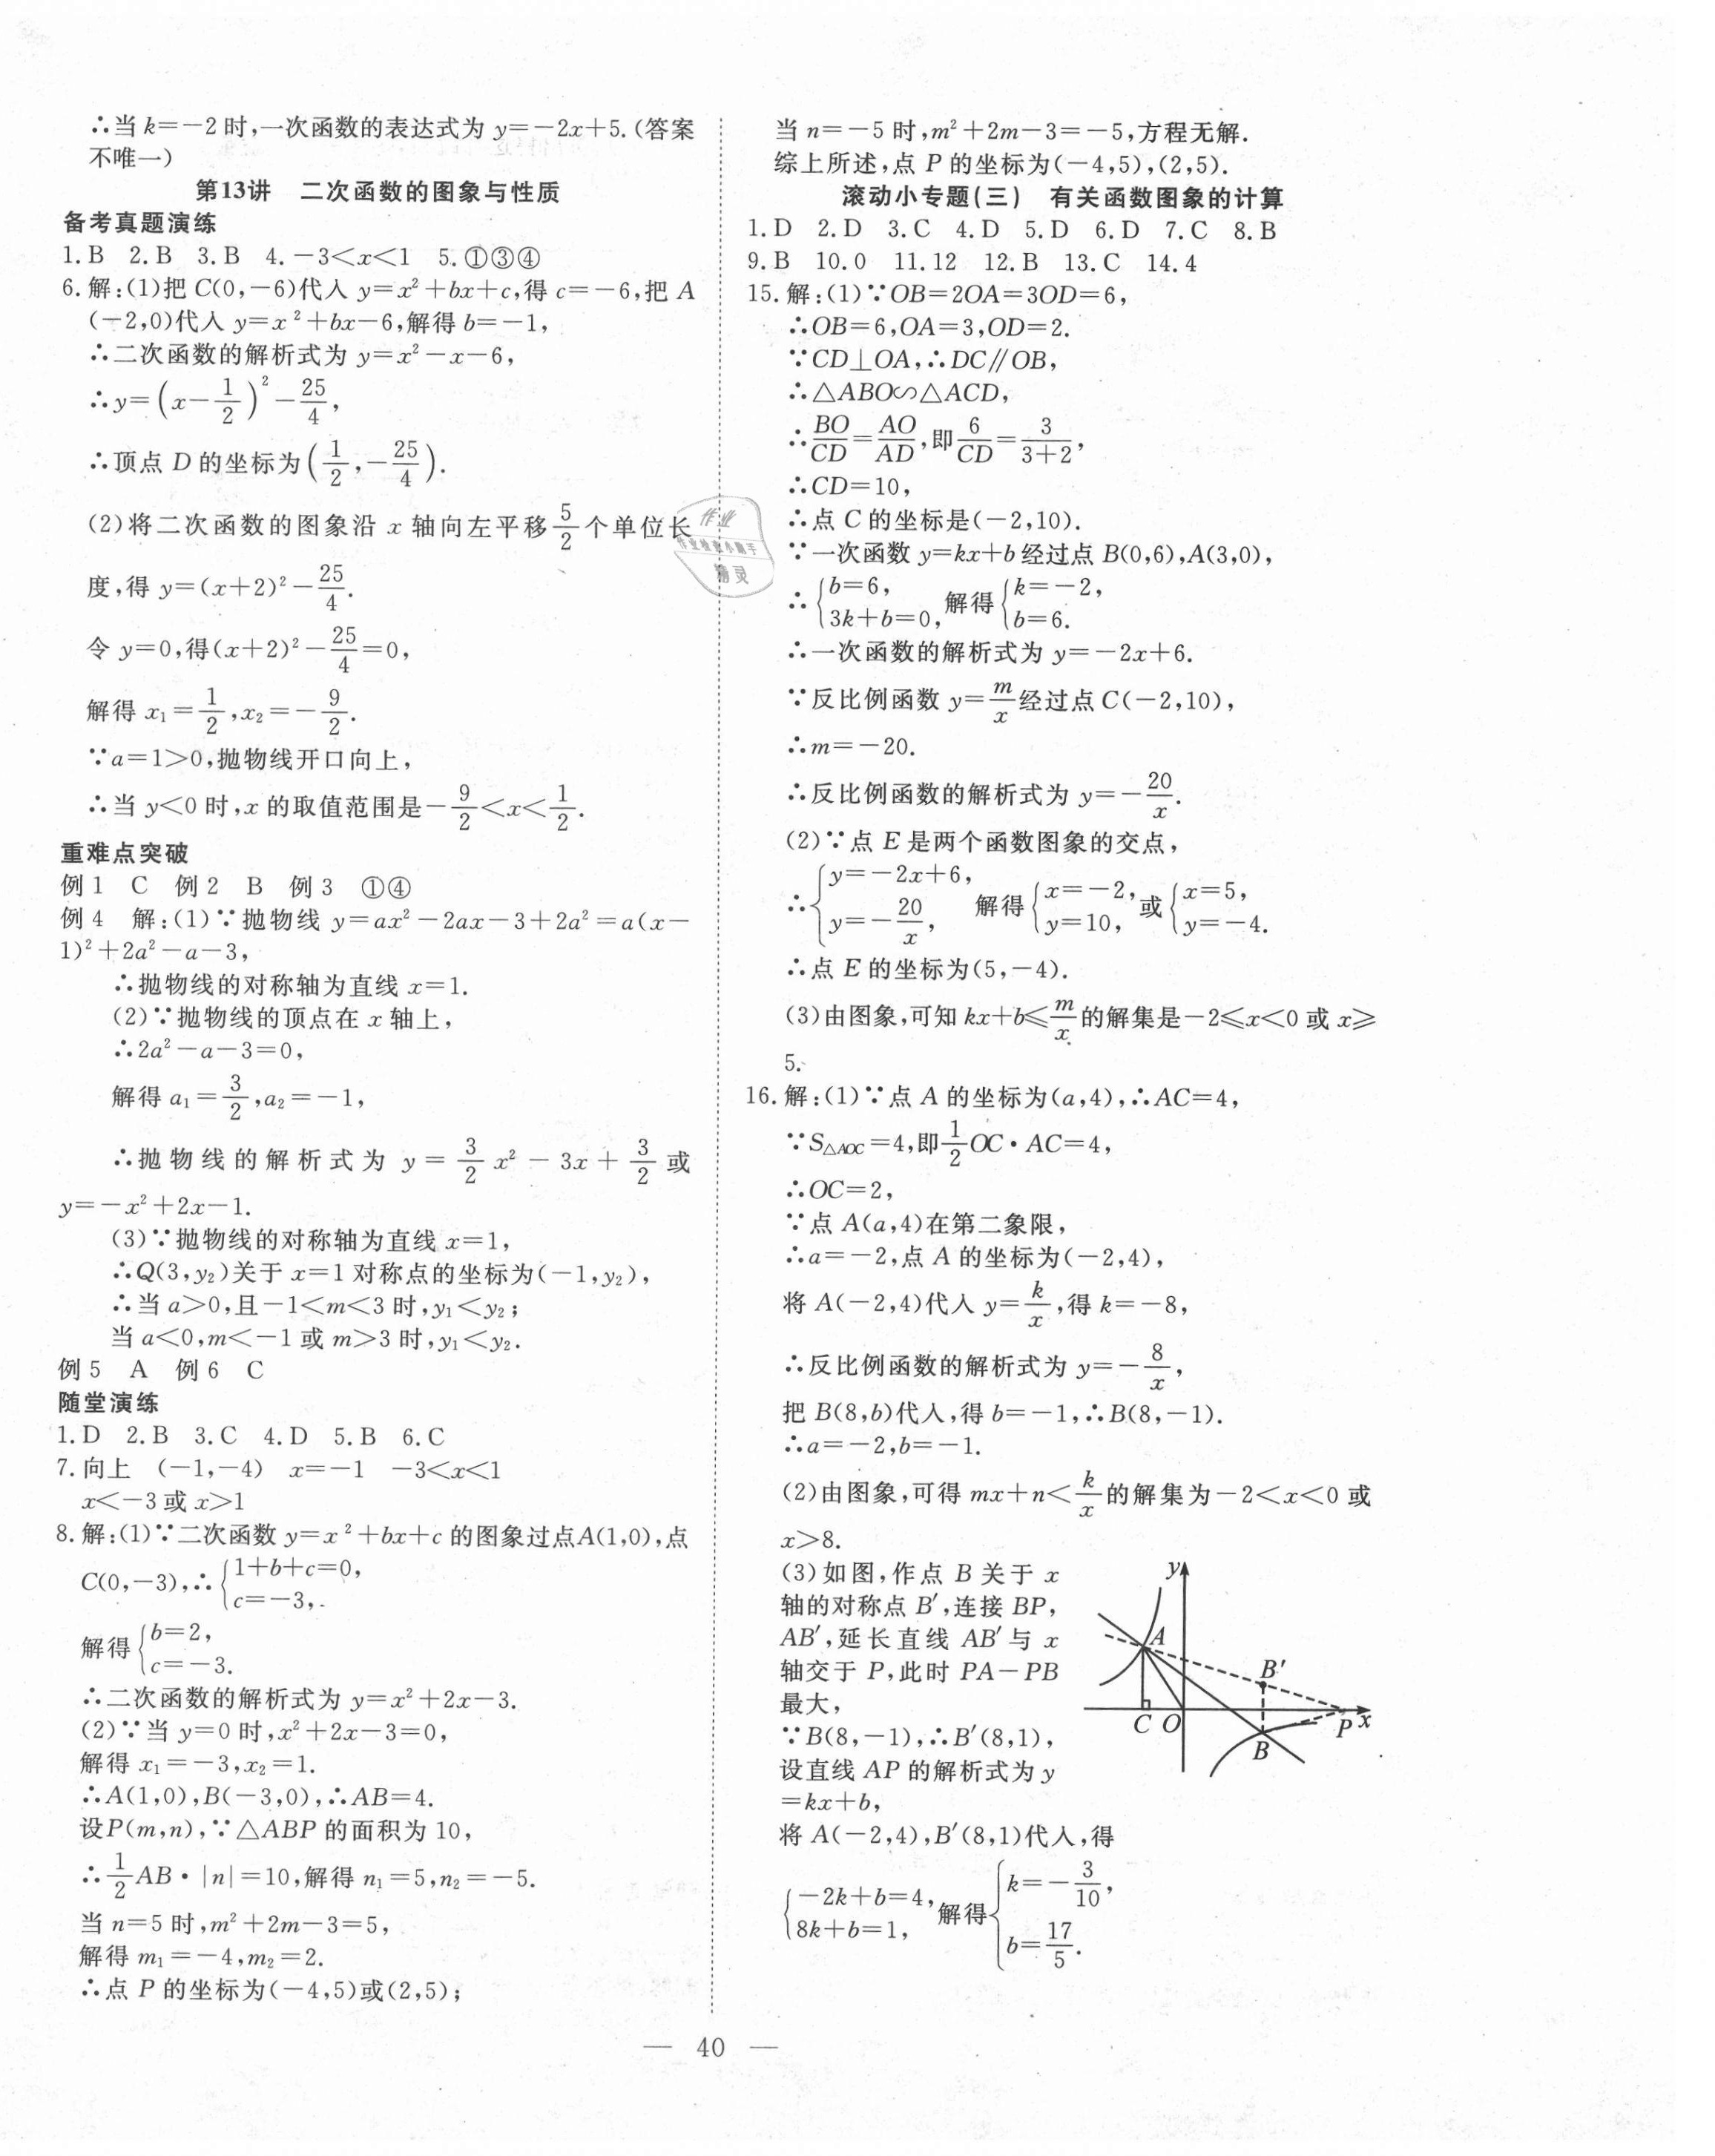 ∴当 k=-2 时,一次函数的表达式为 y=-2x+5.(答案
不唯一)
第13讲 二次函数的图象与性质
备考真题演练
1.B 2.B 3.B 4.-3<x<1 5.①③④
6.解:(1)把 C(0,-6)代入 y=x²+bx+c,得 c=-6,把 A
(-2,0)代入 y=x²+bx-6,解得 b=-1,
∴二次函数的解析式为 y=x²-x-6,
∴y=(x-1/2)²-25/4,
∴顶点 D 的坐标为(1/2,-25/4).
(2)将二次函数的图象沿 x 轴向左平移5/2个单位长
度,得 y=(x+2)²-25/4.
令 y=0,得(x+2)²-25/4=0,
解得 x₁=1/2,x₂=-9/2.
∵a=1>0,抛物线开口向上,
∴当 y<0 时,x 的取值范围是-9/2<x<1/2.
重难点突破
例1 C 例2 B 例3 ①④
例4 解:(1)∵抛物线 y=ax²-2ax-3+2a²=a(x-
1)²+2a²-a-3,
∴抛物线的对称轴为直线 x=1.
(2)∵抛物线的顶点在 x 轴上,
∴2a²-a-3=0,
解得 a₁=3/2,a₂=-1,
∴抛物线的解析式为 y=3/2x²-3x+3/2或
y=-x²+2x-1.
(3)∵抛物线的对称轴为直线 x=1,
∴Q(3,y₂)关于 x=1 对称点的坐标为(-1,y₂),
∴当 a>0,且-1<m<3 时,y₁<y₂;
当 a<0,m<-1 或 m>3 时,y₁<y₂.
例5 A 例6 C
随堂演练
1.D 2.B 3.C 4.D 5.B 6.C
7.向上 (-1,-4) x=-1 -3<x<1
x<-3 或 x>1
8.解:(1)∵二次函数 y=x²+bx+c 的图象过点A(1,0),点
C(0,-3),∴{1+b+c=0, c=-3,
解得{b=2, c=-3.
∴二次函数的解析式为 y=x²+2x-3.
(2)∵当 y=0 时,x²+2x-3=0,
解得 x₁=-3,x₂=1.
∴A(1,0),B(-3,0),∴AB=4.
设P(m,n),∵△ABP 的面积为 10,
∴1/2AB·|n|=10,解得 n₁=5,n₂=-5.
当 n=5 时,m²+2m-3=5,
解得 m₁=-4,m₂=2.
∴点 P 的坐标为(-4,5)或(2,5);
当 n=-5 时,m²+2m-3=-5,方程无解.
综上所述,点 P 的坐标为(-4,5),(2,5).
滚动小专题(三) 有关函数图象的计算
1.D 2.D 3.C 4.D 5.D 6.D 7.C 8.B
9.B 10.0 11.12 12.B 13.C 14.4
15.解:(1)∵OB=2OA=3OD=6,
∴OB=6,OA=3,OD=2.
∵CD⊥OA,∴DC∥OB,
∴△ABO∽△ACD,
∴BO/CD=AO/AD,即6/CD=3/(3+2),
∴CD=10,
∴点 C 的坐标是(-2,10).
∵一次函数 y=kx+b 经过点 B(0,6),A(3,0),
∴{b=6, 3k+b=0, 解得{k=-2, b=6.
∴一次函数的解析式为 y=-2x+6.
∵反比例函数 y=m/x经过点 C(-2,10),
∴m=-20.
∴反比例函数的解析式为 y=-20/x.
(2)∵点 E 是两个函数图象的交点,
∴{y=-2x+6, y=-20/x, 解得{x=-2, y=10, 或{x=5, y=-4.
∴点 E 的坐标为(5,-4).
(3)由图象,可知 kx+b≤m/x的解集是-2≤x<0 或 x≥
5.
16.解:(1)∵点 A 的坐标为(a,4),∴AC=4,
∵S△AOC=4,即1/2OC·AC=4,
∴OC=2,
∵点 A(a,4)在第二象限,
∴a=-2,点 A 的坐标为(-2,4),
将 A(-2,4)代入 y=k/x,得 k=-8,
∴反比例函数的解析式为 y=-8/x,
把 B(8,b)代入,得 b=-1,∴B(8,-1).
∴a=-2,b=-1.
(2)由图象,可得 mx+n<k/x的解集为-2<x<0 或
x>8.
(3)如图,作点 B 关于 x
轴的对称点 B′,连接 BP,
AB′,延长直线 AB′与 x
轴交于 P,此时 PA-PB
最大,
∵B(8,-1),∴B′(8,1),
设直线 AP 的解析式为 y
=kx+b,
将 A(-2,4),B′(8,1)代入,得
{-2k+b=4, 8k+b=1, 解得{k=-3/10, b=17/5.
y
A
B′
C O
P x
B
— 40 —
作业
精灵